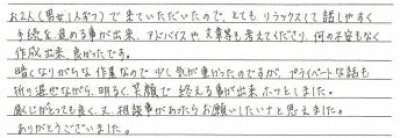 お2人(男女1人ずつ)で来ていただいたので、とてもリラックスして話しやすく
手続を進める事が出来、アドバイスや文章等も考えてくださり、何の不安もなく
作成出来、良かったです。
暗くなりがちな作業なので少し気が重かったのですが、プライベートな話も
折り混ぜながら、明るく、笑顔で終える事が出来ホッとしました。
感じがとっても良く、又、相談事があったらお願いしたいナと思えました。
ありがとうございました。